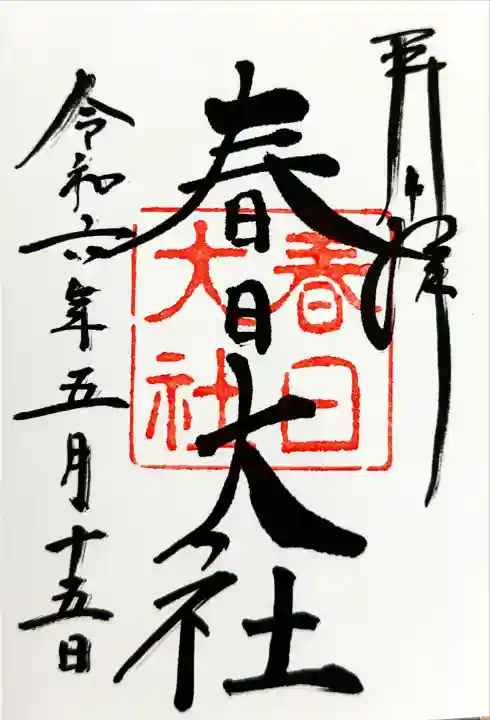 春日大社
春日
大社
令和六年五月十五日